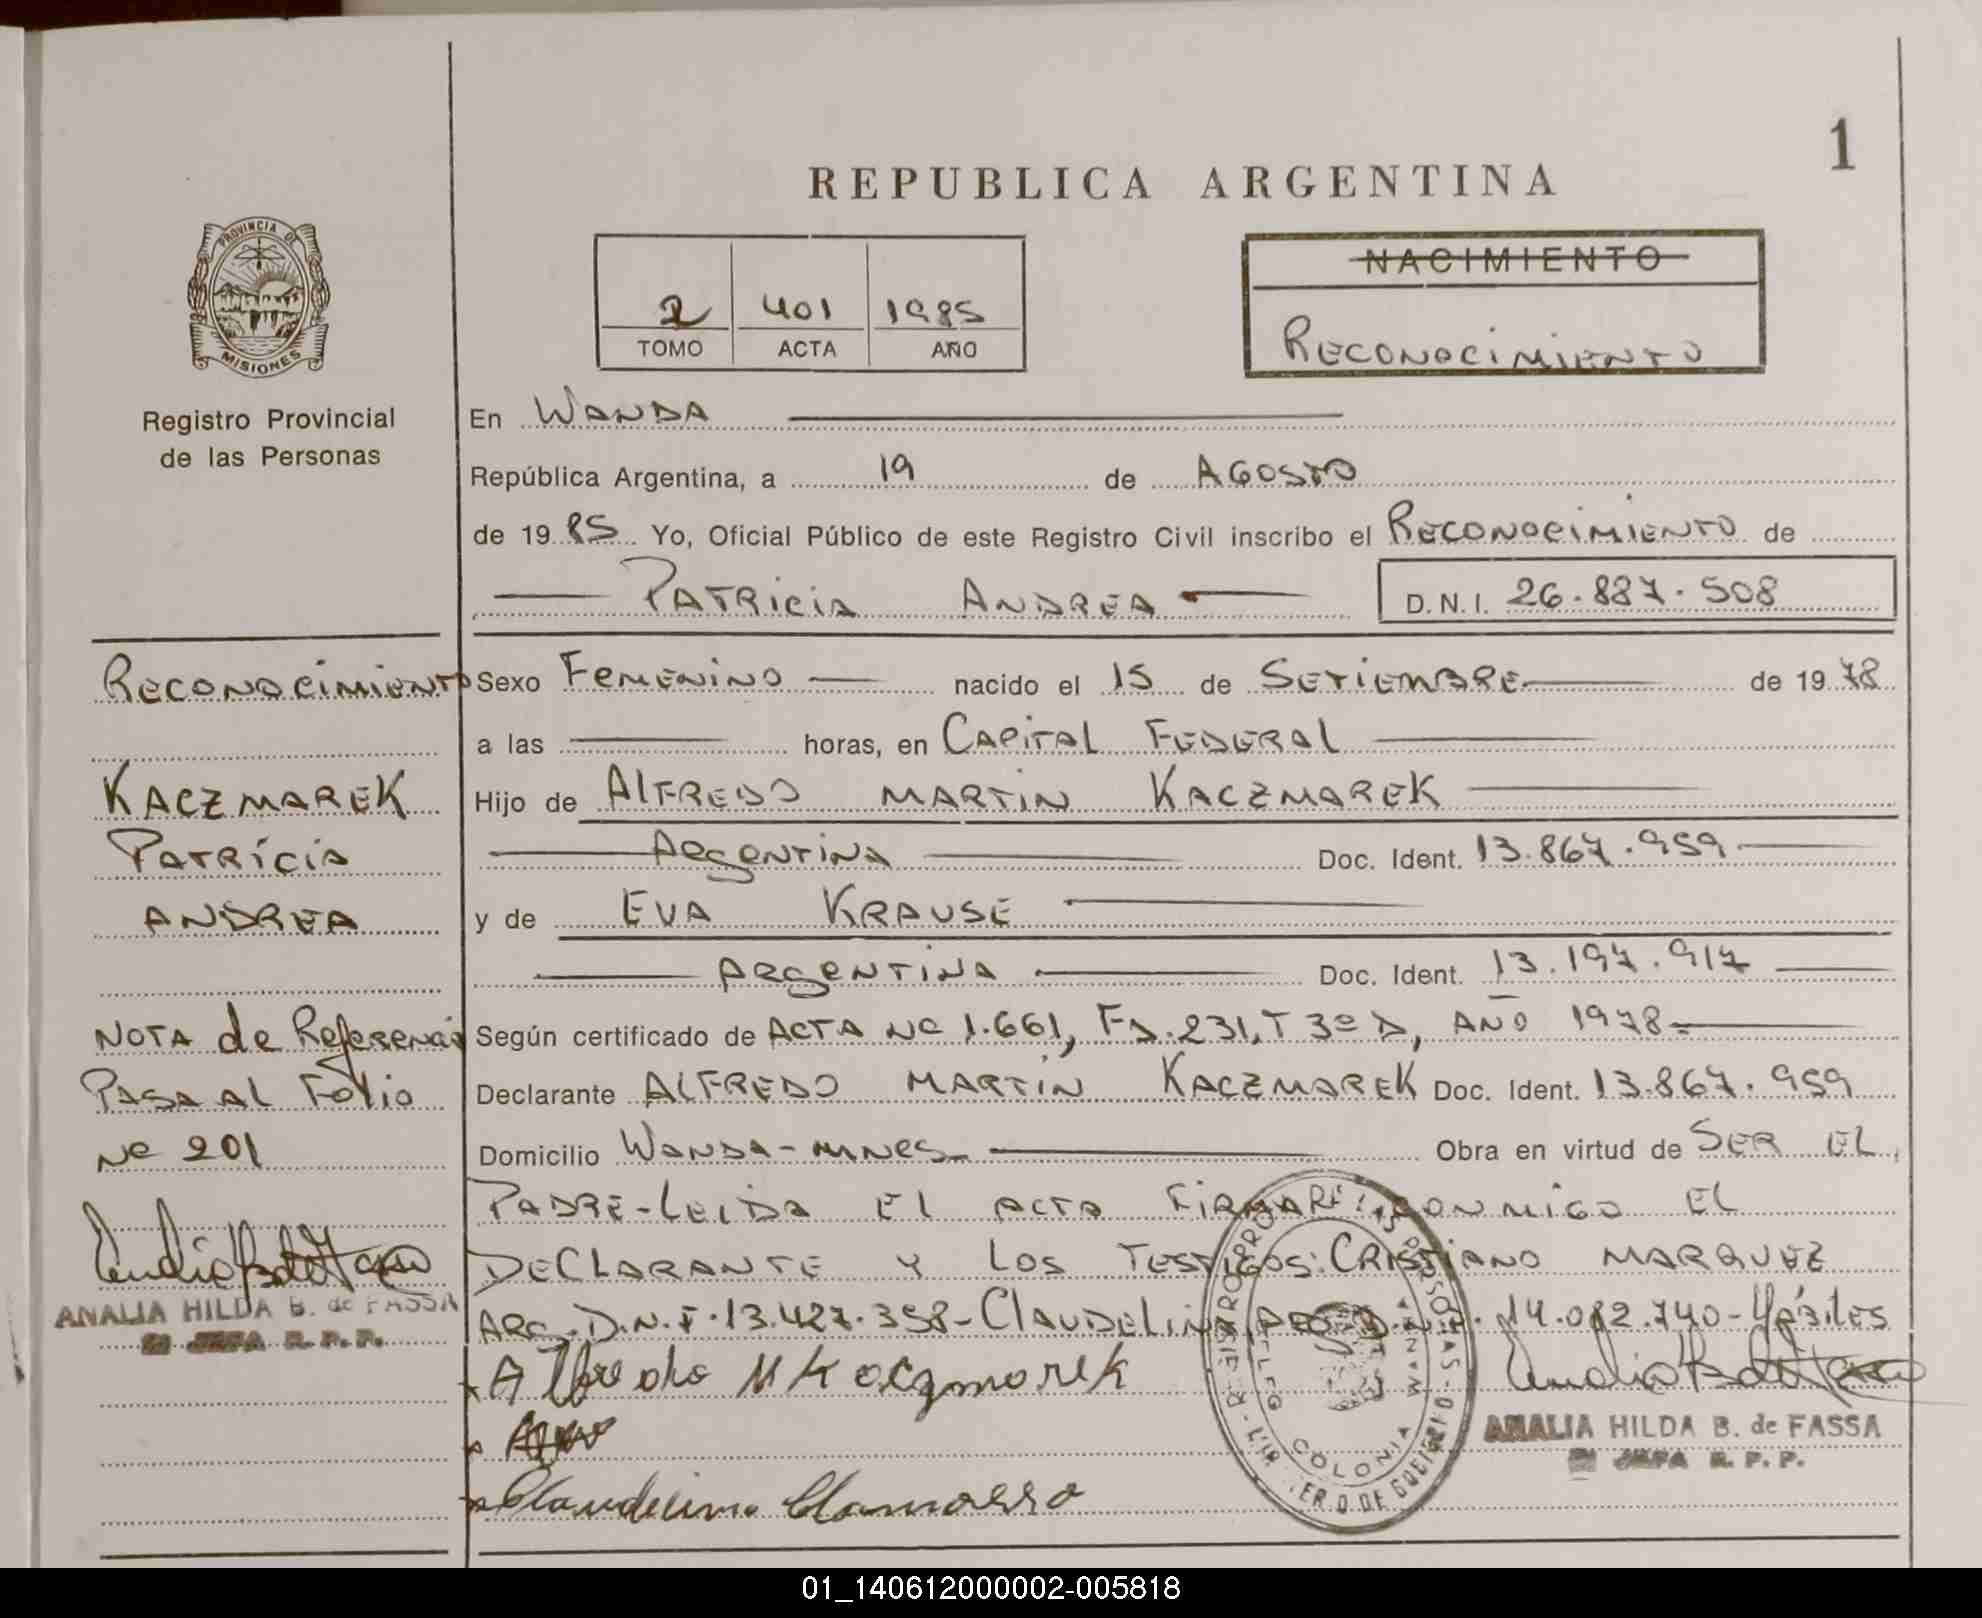 1
REPUBLICA ARGENTINA
PROVINCIA DE
MISIONES
Registro Provincial
de las Personas
2 401 1985
TOMO ACTA AÑO
NACIMIENTO
RECONOCIMIENTO
En WANDA
República Argentina, a 19 de AGOSTO
de 19 85 Yo, Oficial Público de este Registro Civil inscribo el RECONOCIMIENTO de
PATRICIA ANDREA D.N.I. 26.887.508
Sexo FEMENINO nacido el 15 de SETIEMBRE de 19 78
a las horas, en CAPITAL FEDERAL
Hijo de ALFREDO MARTIN KACZMAREK
ARGENTINA Doc. Ident. 13.867.959
y de EVA KRAUSE
ARGENTINA Doc. Ident. 13.197.917
Según certificado de ACTA Nº 1.661, Fº.231, T 3º D, AÑO 1978
Declarante ALFREDO MARTIN KACZMAREK Doc. Ident. 13.867.959
Domicilio WANDA-MNES Obra en virtud de SER EL
PADRE-LEIDA EL ACTA FIRMAN CONMIGO EL
DECLARANTE Y LOS TESTIGOS: CRISTIANO MARQUEZ
ARG. D.N.I. 13.427.358-CLAUDELINA D.N.I. 14.082.740-HÁBILES
Alfredo M Kaczmarek
ANALIA HILDA B. de FASSA
JEFA R. P. P.
RECONOCIMIENTO
KACZMAREK
PATRICIA
ANDREA
NOTA de Referencia
PASA AL Folio
Nº 201
ANALIA HILDA B. de FASSA
JEFA R. P. P.
COLONIA WANDA
01_140612000002-005818